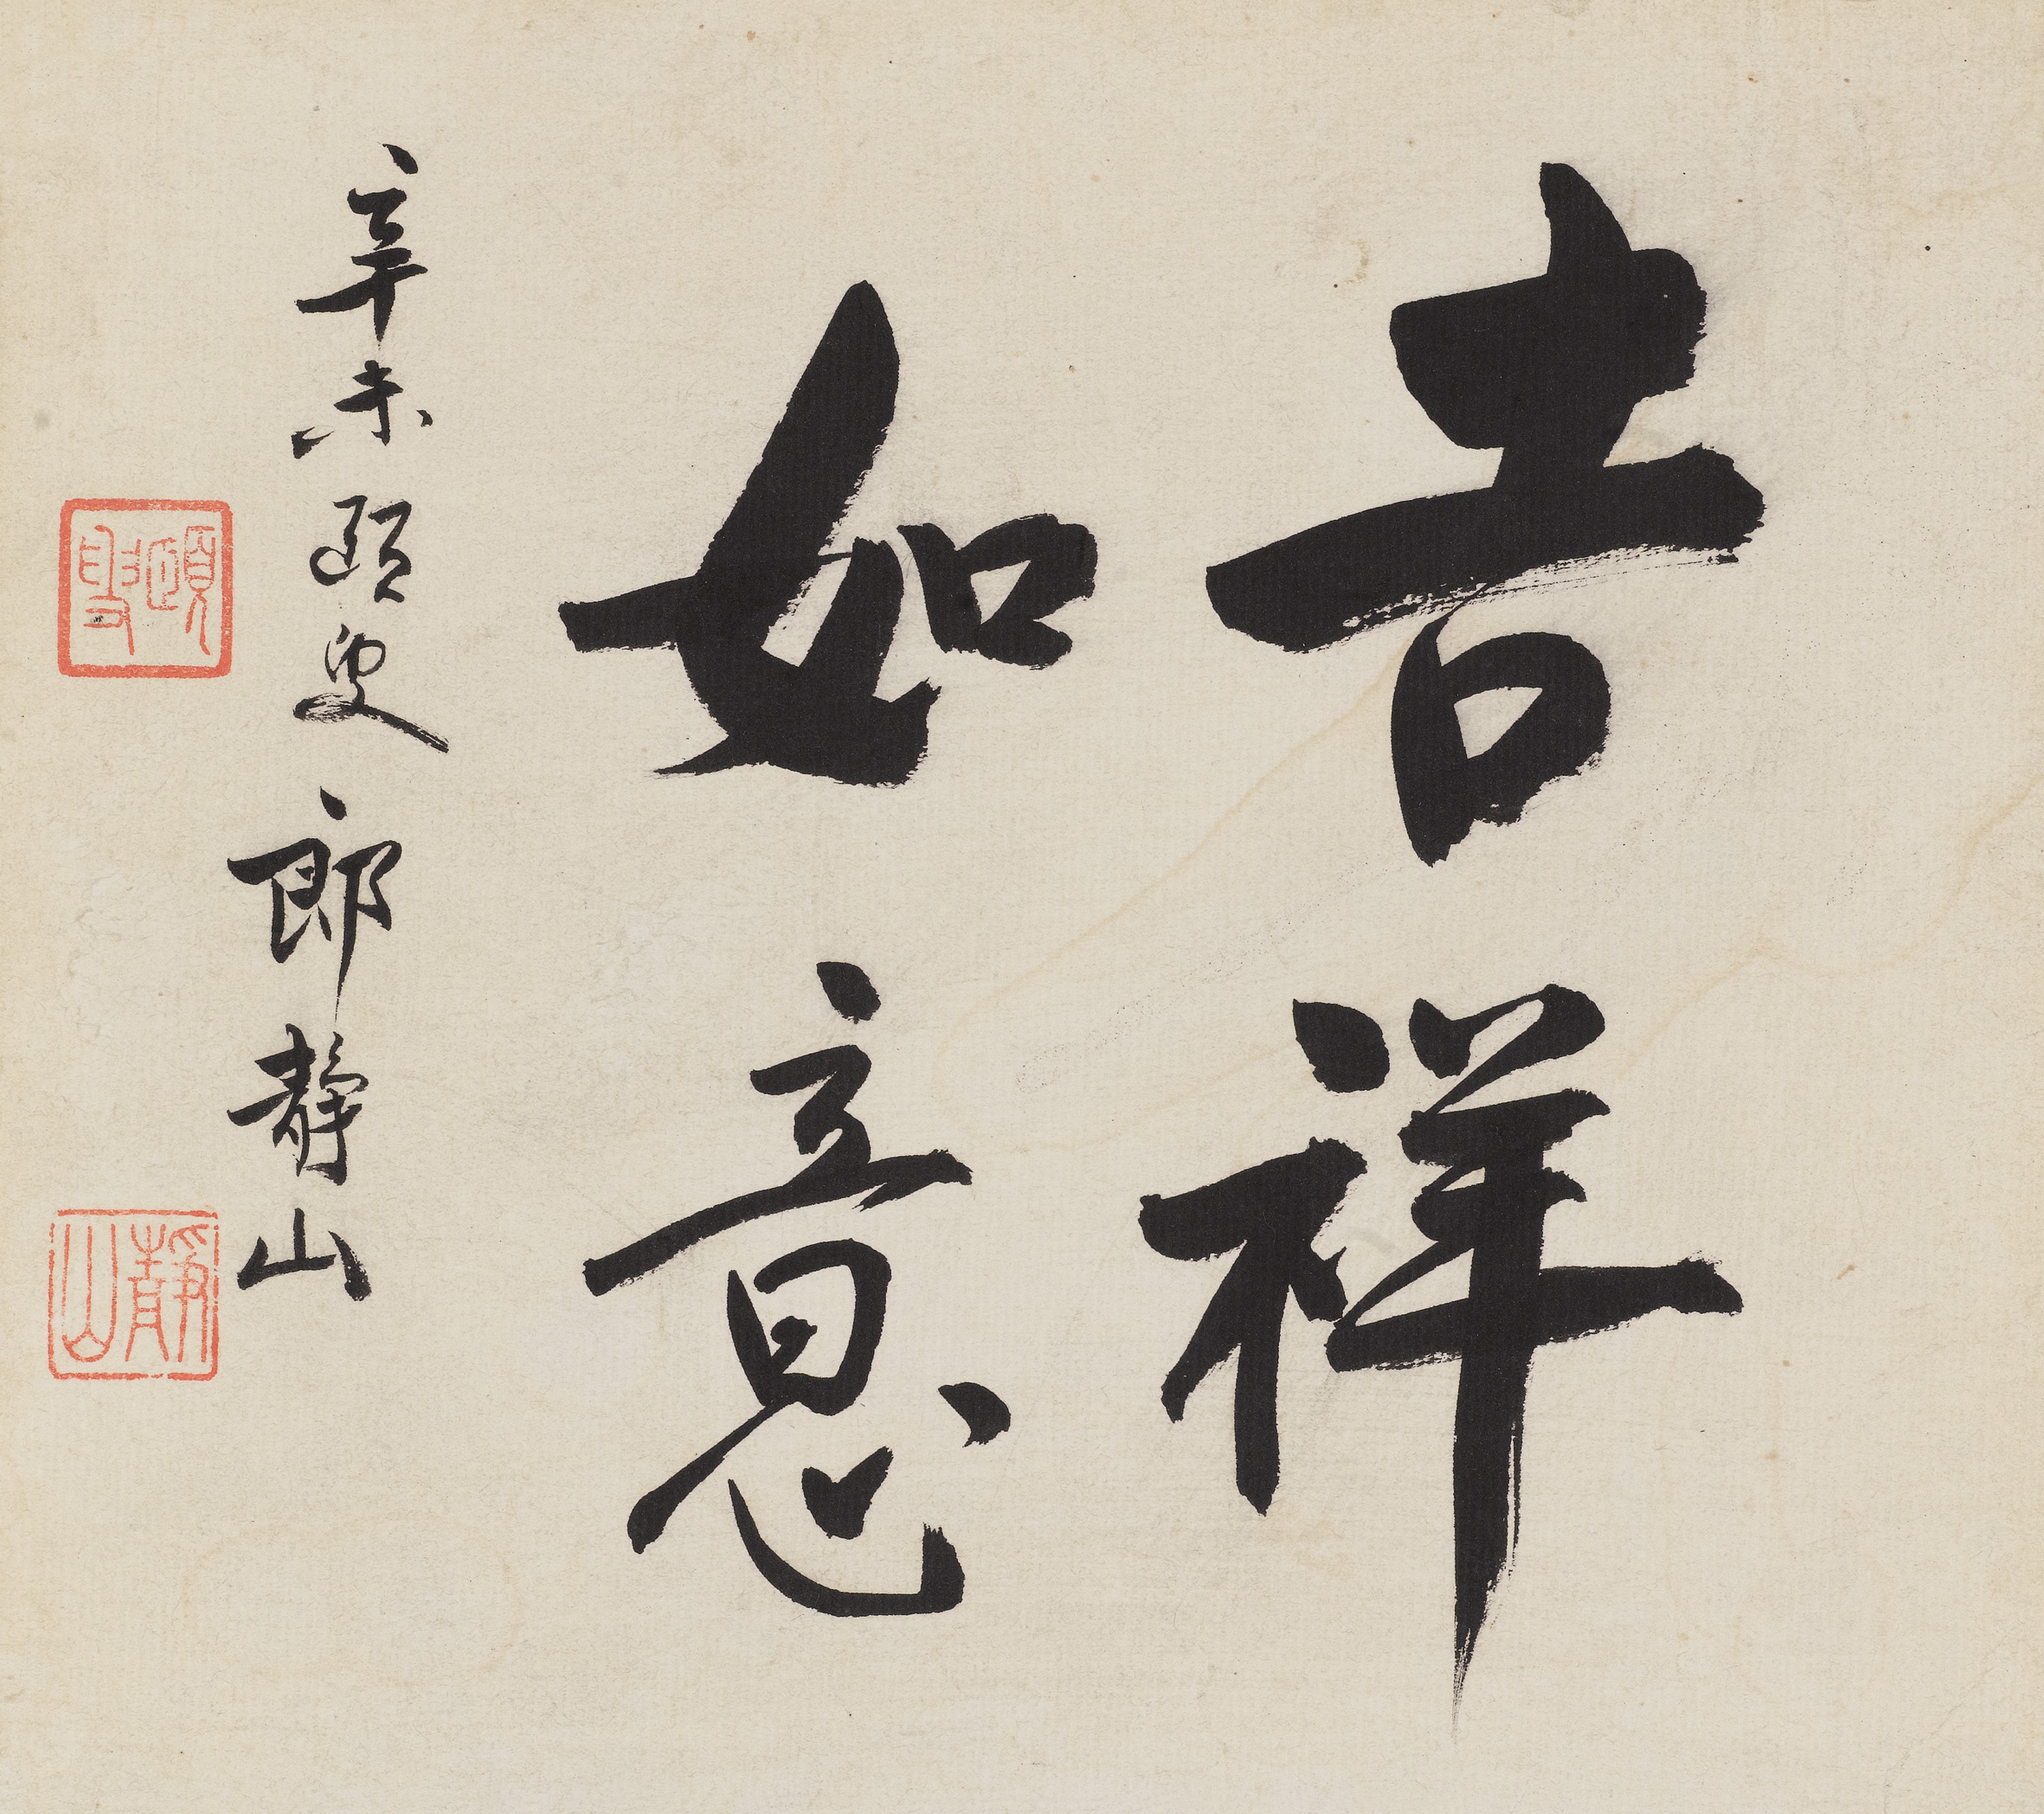 吉祥
如意
辛未頤叟郎靜山
頤叟
靜山